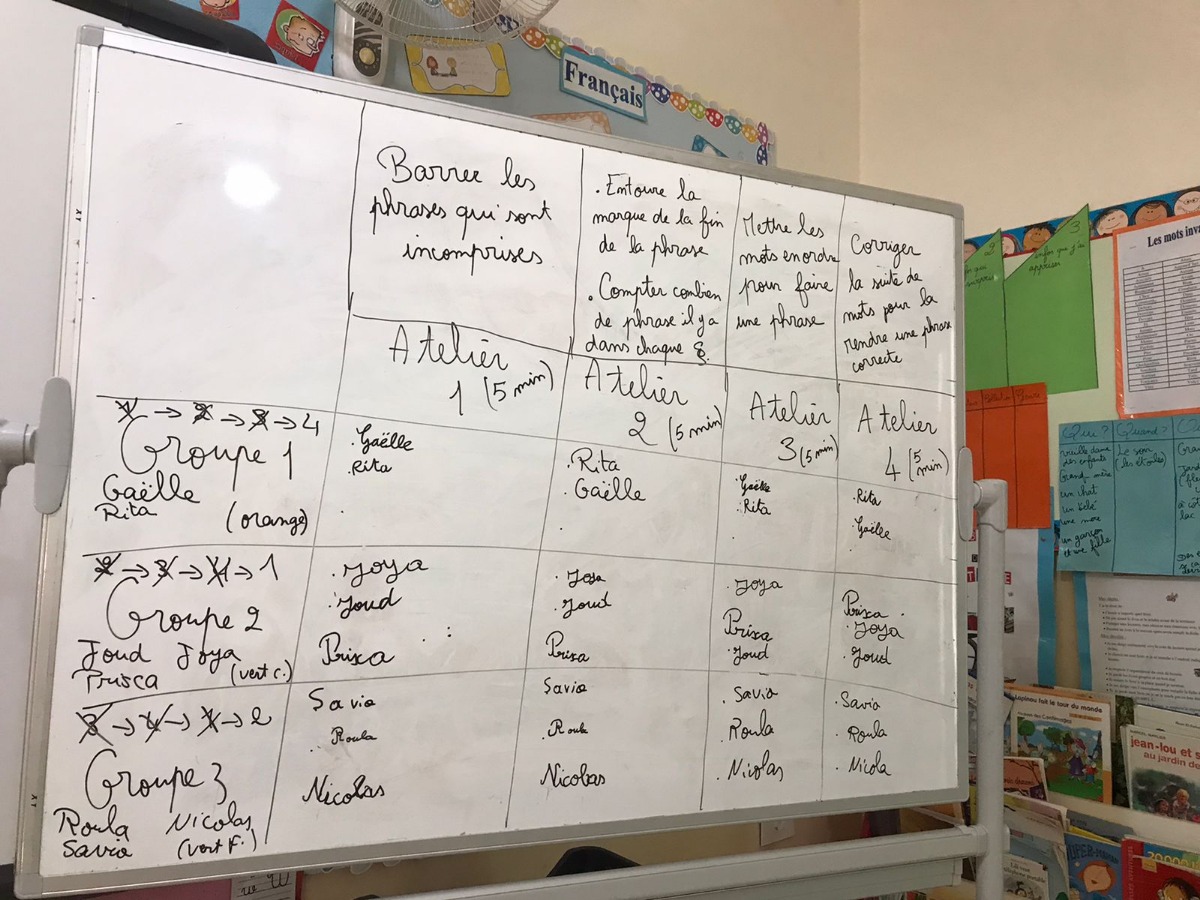 Français
Barrer les
phrases qui sont
incomprises
. Entoure la
marque de la fin
de la phrase
. Compter combien
de phrase il y a
dans chaque §.
Mettre les
mots en ordre
pour faire
une phrase
Corriger
la suite de
mots pour la
rendre une phrase
correcte
Atelier
1 (5 min)
Atelier
2 (5 min)
Atelier
3 (5 min)
Atelier
4 (5 min)
1 → 2 → 3 → 4
Groupe 1
Gaëlle
Rita
(orange)
. Gaëlle
. Rita
. Rita
. Gaëlle
. Gaëlle
. Rita
. Rita
. Gaëlle
2 → 3 → 4 → 1
Groupe 2
Joud Joya
Prisca (vert c.)
. Joya
. Joud
Prisca
. Joya
. Joud
Prisca
. Joya
Prisca
. Joud
Prisca
. Joya
. Joud
3 → 4 → 1 → 2
Groupe 3
Roula Nicolas
Savio (vert F.)
Savio
. Roula
Nicolas
Savio
. Roula
Nicolas
. Savio
. Roula
. Nicolas
. Savio
. Roula
. Nicola
2
3
enfin que j'ai
Les mots inva
Qui ?
Quand ?
vieille dame
des enfants
Grand-mère
un chat
un bébé
une mère
un garçon
et une fille
Le soir
(les étoiles)
Lapinou fait le tour du monde
jean-lou et s
au jardin de